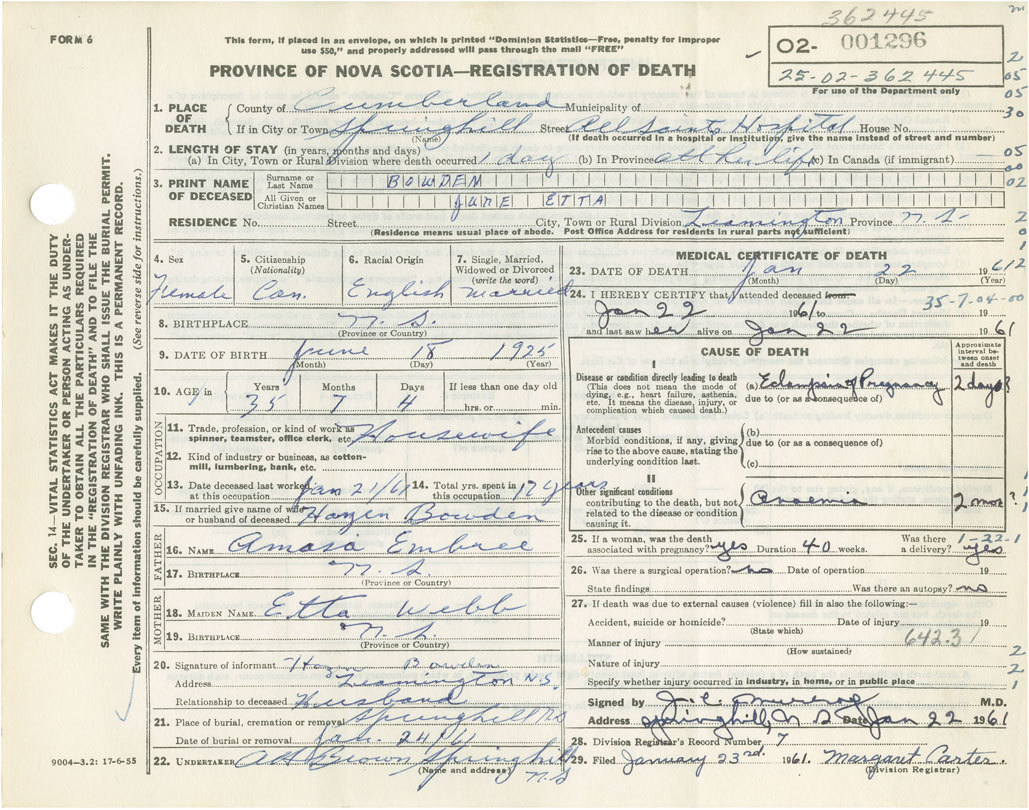 362445
FORM 6
This form, if placed in an envelope, on which is printed "Dominion Statistics—Free, penalty for improper
use $50," and properly addressed will pass through the mail "FREE"
O2- 001296
25-02-362445
For use of the Department only
PROVINCE OF NOVA SCOTIA—REGISTRATION OF DEATH
2
05
05
30
05
00
02
2
0
1
SEC. 14—VITAL STATISTICS ACT MAKES IT THE DUTY
OF THE UNDERTAKER OR PERSON ACTING AS UNDER-
TAKER TO OBTAIN ALL THE PARTICULARS REQUIRED
IN THE "REGISTRATION OF DEATH" AND TO FILE THE
SAME WITH THE DIVISION REGISTRAR WHO SHALL ISSUE THE BURIAL PERMIT.
WRITE PLAINLY WITH UNFADING INK. THIS IS A PERMANENT RECORD.
Every item of information should be carefully supplied. (See reverse side for instructions.)
1. PLACE OF DEATH County of Cumberland Municipality of
If in City or Town Springhill Street All Saints Hospital House No.
(Name) (If death occurred in a hospital or institution, give the name instead of street and number)
2. LENGTH OF STAY (in years, months and days)
(a) In City, Town or Rural Division where death occurred 1 day (b) In Province all her life (c) In Canada (if immigrant)
3. PRINT NAME OF DECEASED Surname or Last Name BOWDEN
All Given or Christian Names JUNE ETTA
RESIDENCE No. Street City, Town or Rural Division Leamington Province N.S.
(Residence means usual place of abode. Post Office Address for residents in rural parts not sufficient)
4. Sex Female
5. Citizenship (Nationality) Can.
6. Racial Origin English
7. Single, Married, Widowed or Divorced (write the word) Married
8. BIRTHPLACE N.S.
(Province or Country)
9. DATE OF BIRTH June 18 1925
(Month) (Day) (Year)
10. AGE Years 35 Months 7 Days 4 If less than one day old hrs. or min.
OCCUPATION
11. Trade, profession, or kind of work as spinner, teamster, office clerk, etc. Housewife
12. Kind of industry or business, as cotton-mill, lumbering, bank, etc.
13. Date deceased last worked at this occupation Jan 21/61
14. Total yrs. spent in this occupation 17 years
15. If married give name of wife or husband of deceased Hazen Bowden
FATHER
16. NAME Amasa Embree
17. BIRTHPLACE N.S.
(Province or Country)
MOTHER
18. MAIDEN NAME Etta Webb
19. BIRTHPLACE N.S.
(Province or Country)
20. Signature of informant Hazen Bowden
Address Leamington N.S.
Relationship to deceased Husband
21. Place of burial, cremation or removal Springhill N.S
Date of burial or removal Jan. 24/61
22. UNDERTAKER AH Brown Springhill
(Name and address) N.S
9004—3.2: 17-6-55
MEDICAL CERTIFICATE OF DEATH
23. DATE OF DEATH Jan 22 1961
(Month) (Day) (Year)
24. I HEREBY CERTIFY that I attended deceased from 35-7-04-00
Jan 22 1961 to 19
and last saw her alive on Jan 22 1961
CAUSE OF DEATH
Approximate interval between onset and death
I
Disease or condition directly leading to death
(This does not mean the mode of dying, e.g., heart failure, asthenia, etc. It means the disease, injury, or complication which caused death.)
(a) Eclampsia of Pregnancy 2 days?
due to (or as a consequence of)
Antecedent causes
Morbid conditions, if any, giving rise to the above cause, stating the underlying condition last.
(b)
due to (or as a consequence of)
(c)
II
Other significant conditions contributing to the death, but not related to the disease or condition causing it.
Anaemia 2 mos?
25. If a woman, was the death associated with pregnancy? yes Duration 40 weeks. Was there a delivery? yes
1-22-1
26. Was there a surgical operation? no Date of operation 19
State findings Was there an autopsy? no
27. If death was due to external causes (violence) fill in also the following:—
Accident, suicide or homicide? Date of injury 19
(State which)
Manner of injury 642.3
(How sustained)
Nature of injury
Specify whether injury occurred in industry, in home, or in public place
Signed by M.D.
Address Springhill, N S Date Jan 22 1961
28. Division Registrar's Record Number 7
29. Filed January 23rd. 1961. Margaret Carter.
(Division Registrar)